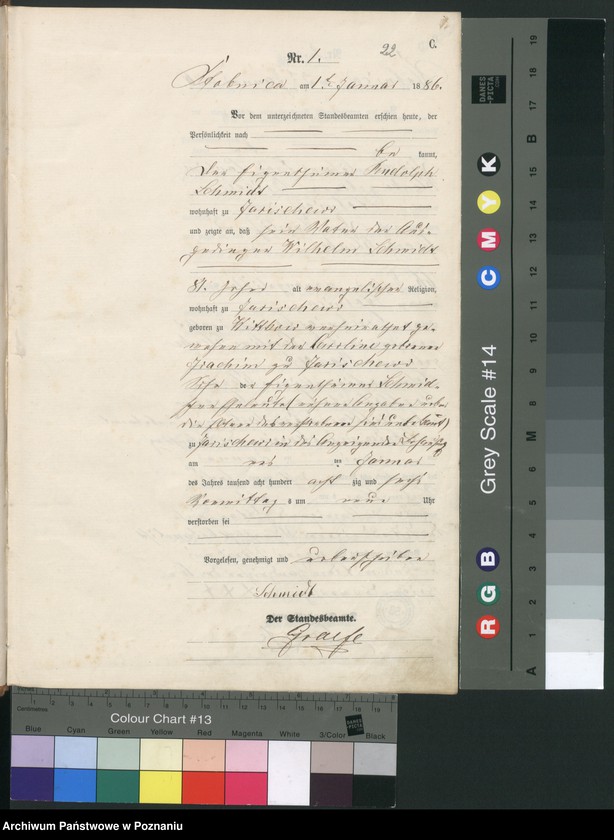 22
C.
Nr. 1.
Stobnica am 1t Januar 1886.
Vor dem unterzeichneten Standesbeamten erschien heute, der
Persönlichkeit nach
be kannt,
der Eigenthümer Rudolph
Schmidt
wohnhaft zu Jarischewo
und zeigte an, daß sein Vater der
Wilhelm Schmidt
81 Jahre alt evangelischer Religion,
wohnhaft zu Jarischewo
geboren zu verheirathet ge-
wesen mit der geborene
Joachim zu Jarischewo
Sohn der Eigenthümer Schmidt
zu Jarischewo in des Anzeigenden
am Januar
des Jahres tausend acht hundert acht zig und sechs
Vormittag s um neun Uhr
verstorben sei
Vorgelesen, genehmigt und unterschrieben
Schmidt
Der Standesbeamte.
Graefe
DANES
-PICTA
.COM
A 1 2 3 4 5 6 M 8 9 10 11 12 13 14 15 B 17 18 19
R G B
Grey Scale #14
C M Y K
Centimetres
Colour Chart #13
Blue Cyan Green Yellow Red Magenta White 3/Color Black
Archiwum Państwowe w Poznaniu